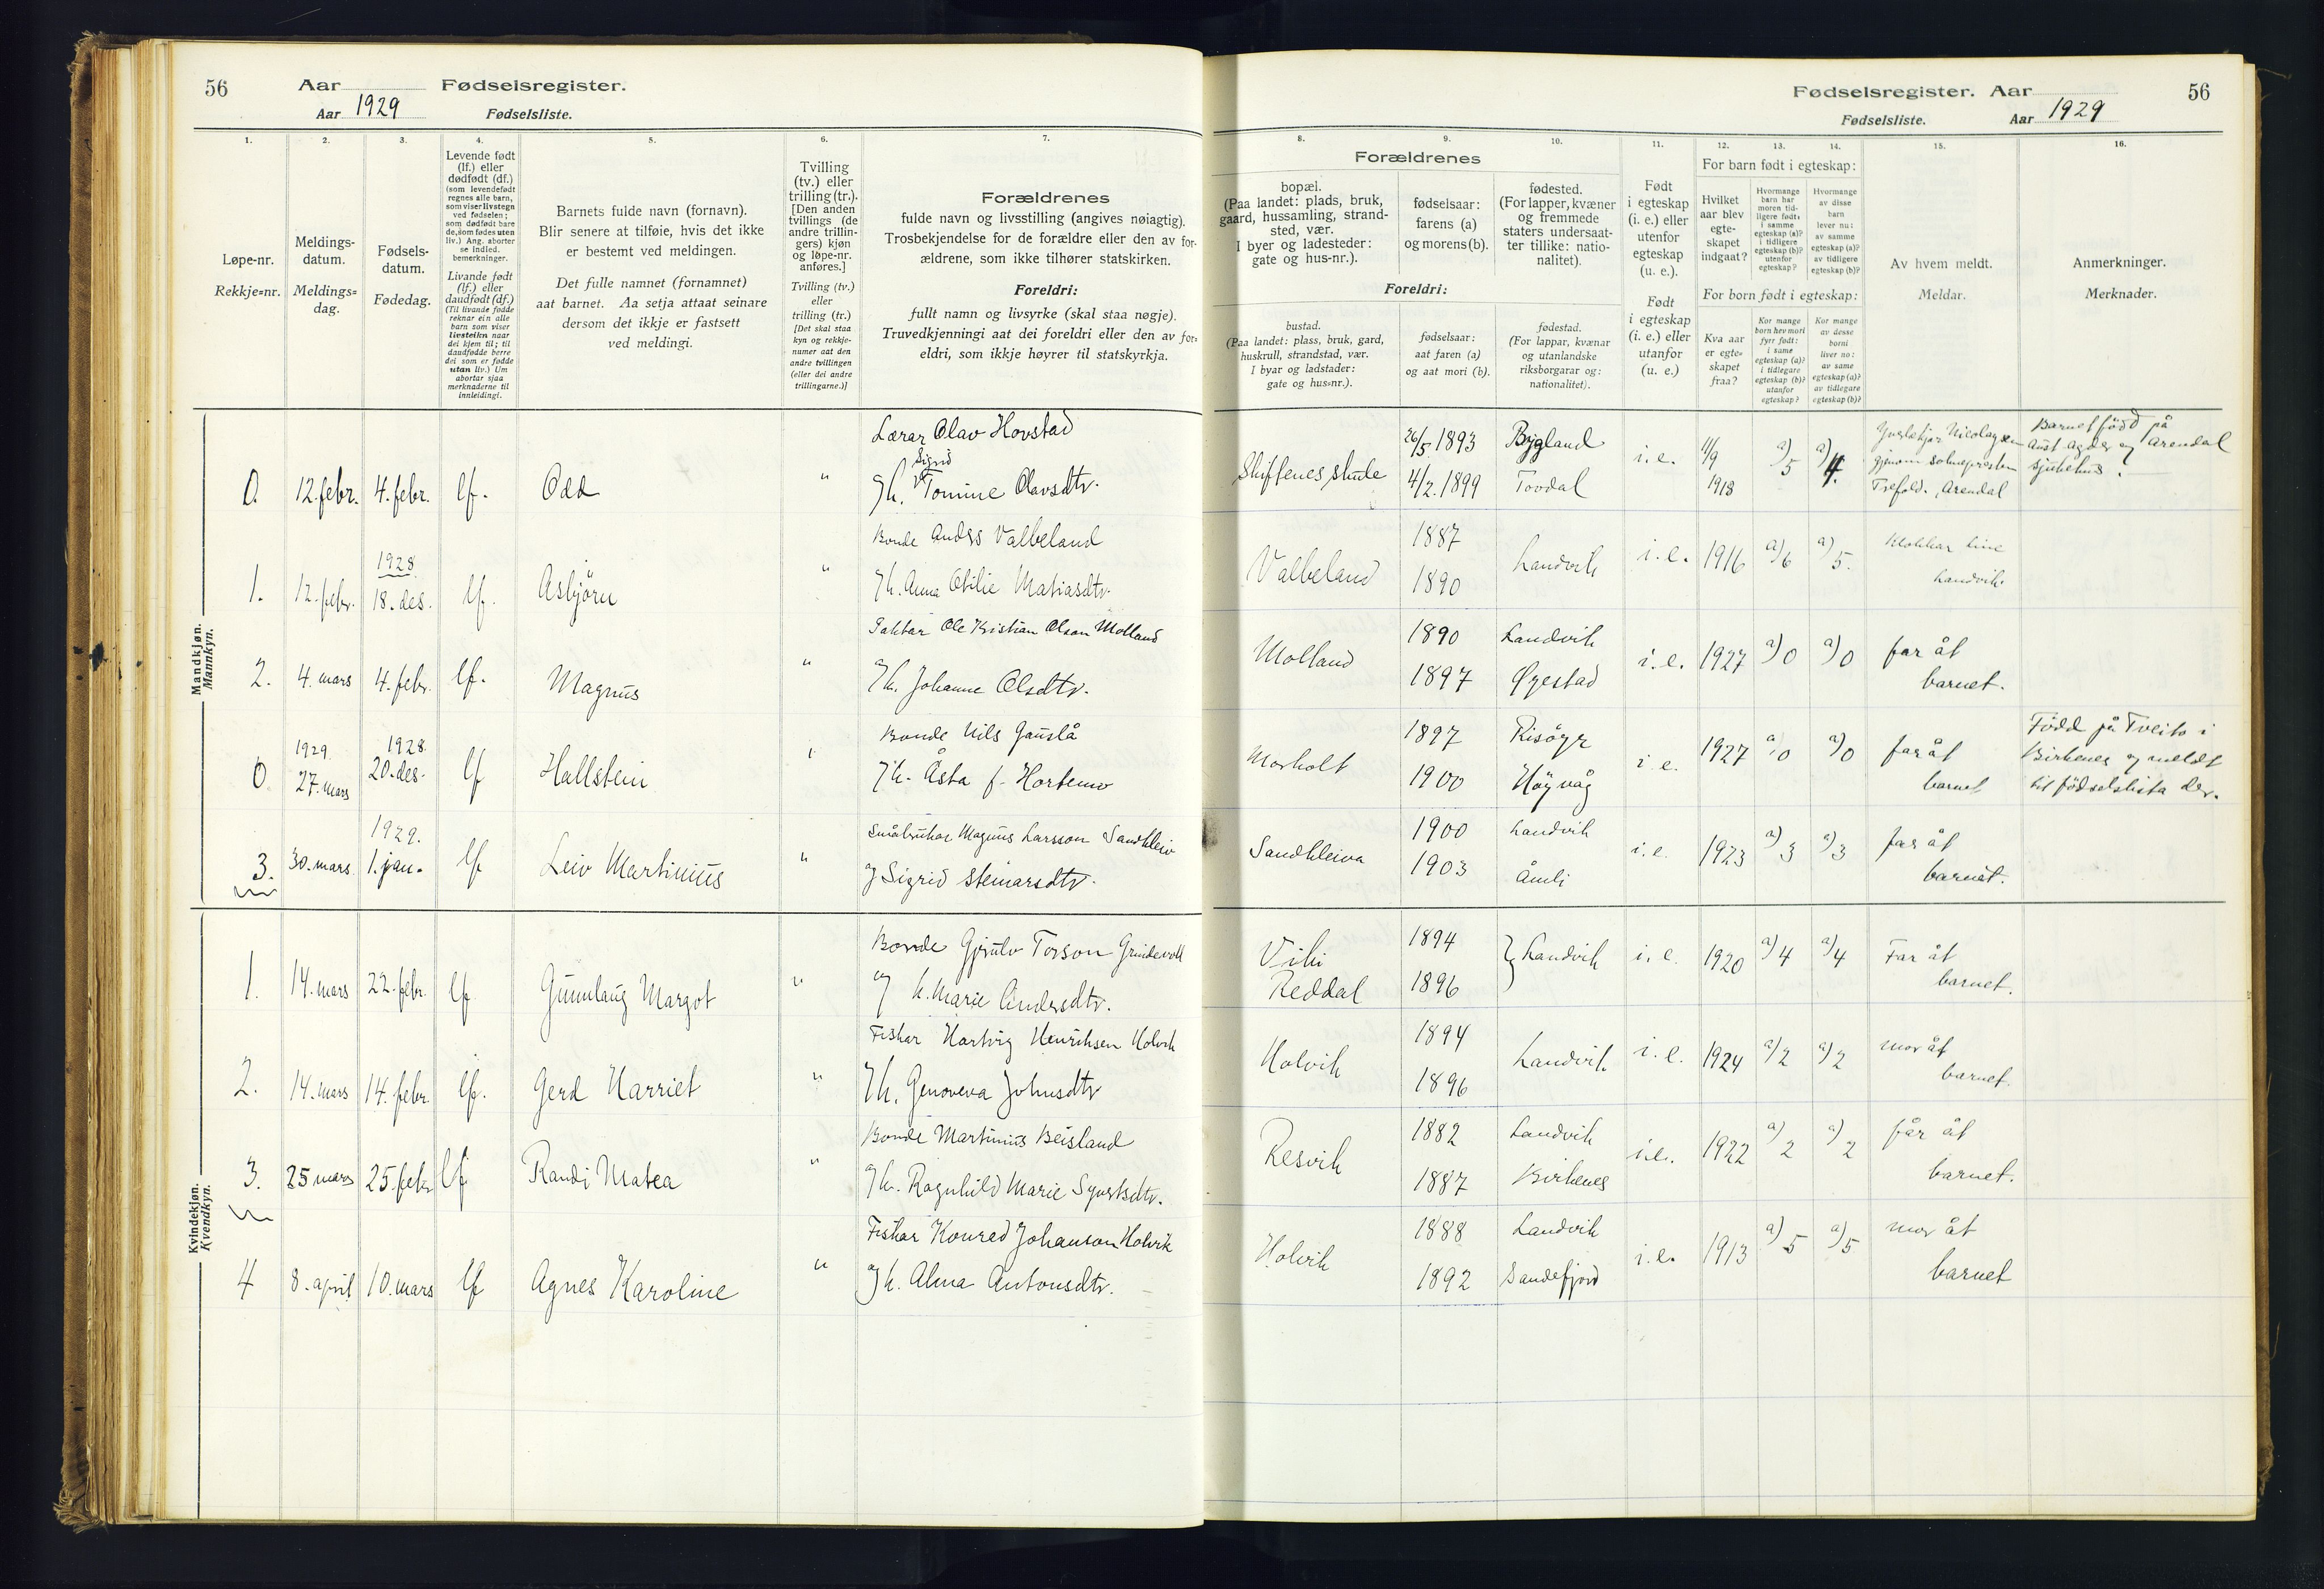 56 Aar Fødselsregister.
Aar 1929 Fødselsliste.
Fødselsregister. Aar 56
Fødselsliste. Aar 1929
1. 2. 3. 4. 5. 6. 7.
Løpe-nr.
Rekkje=nr.
Meldings-
datum.
Meldings=
dag.
Fødsels-
datum.
Fødedag.
Levende født
(lf.) eller
dødfødt (df.)
(som levendefødt
regnes alle barn,
som viser livstegn
ved fødselen;
som dødfødt bare
de, som fødes uten
liv.) Ang. aborter
se indled.
bemerkninger.
Livande født
(lf.) eller
daudfødt (df.)
(Til livande fødde
reknar ein alle
barn som viser
livsteikn naar
dei kjem til; til
daudfødde berre
dei som er fødde
utan liv.) Um
abortar sjaa
merknaderne til
innleidingi.
Barnets fulde navn (fornavn).
Blir senere at tilføie, hvis det ikke
er bestemt ved meldingen.
Det fulle namnet (fornamnet)
aat barnet. Aa setja attaat seinare
dersom det ikkje er fastsett
ved meldingi.
Tvilling
(tv.) eller
trilling (tr.).
[Den anden
tvillings (de
andre trillin-
gers) kjøn
og løpe-nr.
anføres.]
Tvilling (tv.)
eller
trilling (tr.)
[Det skal staa
kyn og rekkje-
numer aat den
andre tvillingen
(eller dei andre
trillingarne.)]
Forældrenes
fulde navn og livsstilling (angives nøiagtig).
Trosbekjendelse for de forældre eller den av for-
ældrene, som ikke tilhører statskirken.
Foreldri:
fullt namn og livsyrke (skal staa nøgje).
Truvedkjenningi aat dei foreldri eller den av for-
eldri, som ikkje høyrer til statskyrkja.
8. 9. 10. 11. 12. 13. 14. 15. 16.
Forældrenes
bopæl.
(Paa landet: plads, bruk,
gaard, hussamling, strand-
sted, vær.
I byer og ladesteder:
gate og hus-nr.).
fødselsaar:
farens (a)
og morens (b).
fødested.
(For lapper, kvæner
og fremmede
staters undersaat-
ter tillike: natio-
nalitet).
Foreldri:
bustad.
(Paa landet: plass, bruk, gard,
huskrull, strandstad, vær.
I byar og ladstader:
gate og hus=nr.).
fødselsaar:
aat faren (a)
og aat mori (b).
fødestad.
(For lappar, kvænar
og utanlandske
riksborgarar og:
nationalitet).
Født
i egteskap
(i. e.) eller
utenfor
egteskap
(u. e.).
Født
i egteskap
(i. e.) eller
utanfor
(u. e.)
For barn født i egteskap:
Hvilket
aar blev
egte-
skapet
indgaat?
Hvormange
barn har
moren tid-
ligere født:
i samme
egteskap (a)?
i tidligere
egteskap (b)?
utenfor
egteskap?
Hvormange
av disse
barn
lever nu:
av samme
egteskap (a)?
av tidligere
egteskap (b)?
For born født i egteskap:
Kva aar
er egte=
skapet
fraa?
Kor mange
born hev mori
fyrr født:
i same
egteskap (a)?
i tidlegare
egteskap (b)?
utanfor
egteskap?
Kor mange
av desse
borni
liver no:
av same
egteskap (a)?
av tidlegare
egteskap (b)?
Av hvem meldt.
Meldar.
Anmerkninger.
Merknader.
Mandkjøn.
Mannkyn.
0. 12. febr. 4. febr. lf. Odd "
Lærar Olav Hovstad
Sigrid
og h. Tomine Olavsdtr.
26/5 1893 Bygland
4/2. 1899 Tovdal
i. e. 11/9 1918 a) 5 a) 4.
gjenom
Arendal
Barnet född på
Aust Agder og Arendal
sjukehus.
1. 12. febr. 1928 18. des. lf. Asbjörn "
Bonde Anders Valbeland
og h. Anna Otilie Matiasdtr.
Valbeland 1887 1890 Landvik i. e. 1916 a) 6 a) 5.
Landvik.
2. 4. mars 4. febr. lf. Magnus "
Ole Kristian Olson Molland
og h. Johanne Olsdtr.
Molland 1890 Landvik
1897 Øyestad
i. e. 1927 a) 0 a) 0 far åt
barnet.
0 1929. 27. mars 1928. 20. des. lf Hallstein "
Bonde Nils Gauslå
og h. Åsta f. Hortemo
Morholt 1897 Risöyr
1900 Höyvåg
i. e. 1927 a) 0 a) 0 far åt
barnet
Född på Tveite i
Birkenes og meldt
til födselslista der.
3. 30. mars 1929. 1. jan. lf Leiv Martinius "
Småbrukar Magnus Larsson Sandkleiv
og Sigrid Steinarsdtr.
Sandkleiva 1900 Landvik
1903 Åmli
i. e. 1923 a) 3 a) 3 far åt
barnet.
Kvindekjøn.
Kvendkyn.
1. 14. mars 22. febr. lf Gunnlaug Margot "
Bonde Gjrulv Torson Grindevoll
og h. Marie Andersdtr.
Viki
Reddal
1894 1896 } Landvik i. e. 1920 a) 4 a) 4 Far åt
barnet.
2. 14. mars 14. febr. lf. Gerd Harriet "
Fiskar Hartvig Henriksen Holvik
og h. Genoveva Johnsdtr
Holvik 1894 1896 Landvik i. e. 1924 a) 2 a) 2 mor åt
barnet.
3. 25 mars 25. febr lf Randi Matea "
Bonde Martinius Beisland
og h. Ragnhild Marie
Resvik 1882 Landvik
1887 Birkenes
i. e. 1922 a) 2 a) 2 far åt
barnet.
4 8. april 10. mars lf Agnes Karoline "
Fiskar Konrad Johanson Holvik
og h. Alma Antonsdtr.
Holvik 1888 Landvik
1892 Sandefjord
i. e. 1913 a) 5 a) 5 mor åt
barnet